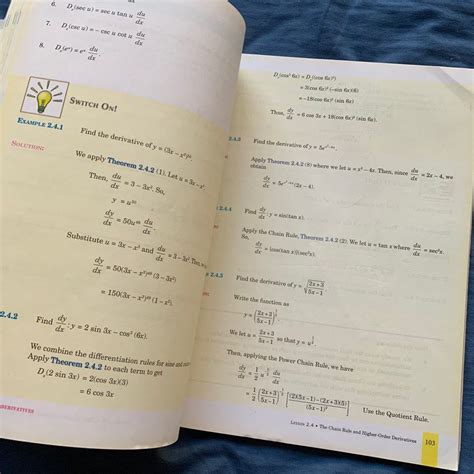 6. Dₓ(sec u) = sec u tan u du/dx
7. Dₓ(csc u) = – csc u cot u du/dx
8. Dₓ(eᵘ) = eᵘ du/dx.
SWITCH ON!
EXAMPLE 2.4.1
Find the derivative of y = (3x – x³)⁵⁰.
SOLUTION:
We apply Theorem 2.4.2 (1). Let u = 3x – x³.
Then, du/dx = 3 – 3x². So,
y = u⁵⁰
dy/dx = 50u⁴⁹ du/dx
Substitute u = 3x – x³ and du/dx = 3 – 3x². Then,
dy/dx = 50(3x – x³)⁴⁹ (3 – 3x²)
= 150(3x – x³)⁴⁹ (1 – x²).
2.4.2
Find dy/dx: y = 2 sin 3x – cos³ (6x).
We combine the differentiation rules for sine and
Apply Theorem 2.4.2 to each term to get
Dₓ(2 sin 3x) = 2(cos 3x)(3)
= 6 cos 3x
DERIVATIVES
Dₓ(cos³ 6x) = Dₓ(cos 6x)³
= 3(cos 6x)² (–sin 6x)(6)
= –18(cos 6x)² (sin 6x).
Thus, dy/dx = 6 cos 3x + 18(cos 6x)² (sin 6x).
2.4.3
Find the derivative of
Apply Theorem 2.4.2 (8) where we let u = x² – 4x. Then, since du/dx = 2x – 4, we
obtain
2.4.4
Find dy/dx: y = sin(tan x).
Apply the Chain Rule, Theorem 2.4.2 (2). We let u = tan x where du/dx = sec²x.
So,
2.4.5
Find the derivative of y = √((2x+3)/(5x–1))
Write the function as
y = ((2x+3)/(5x–1))^(1/2)
We let u = (2x+3)/(5x–1) so that y = u^(1/2).
Then, applying the Power Chain Rule, we have
Use the Quotient Rule.
LESSON 2.4 • The Chain Rule and Higher-Order Derivatives
103